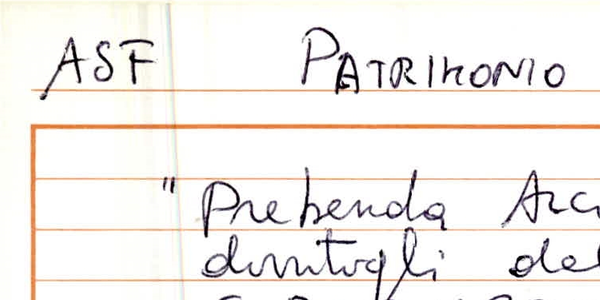 ASF PATRIMONIO
"Prebenda Arci
dirittogli del